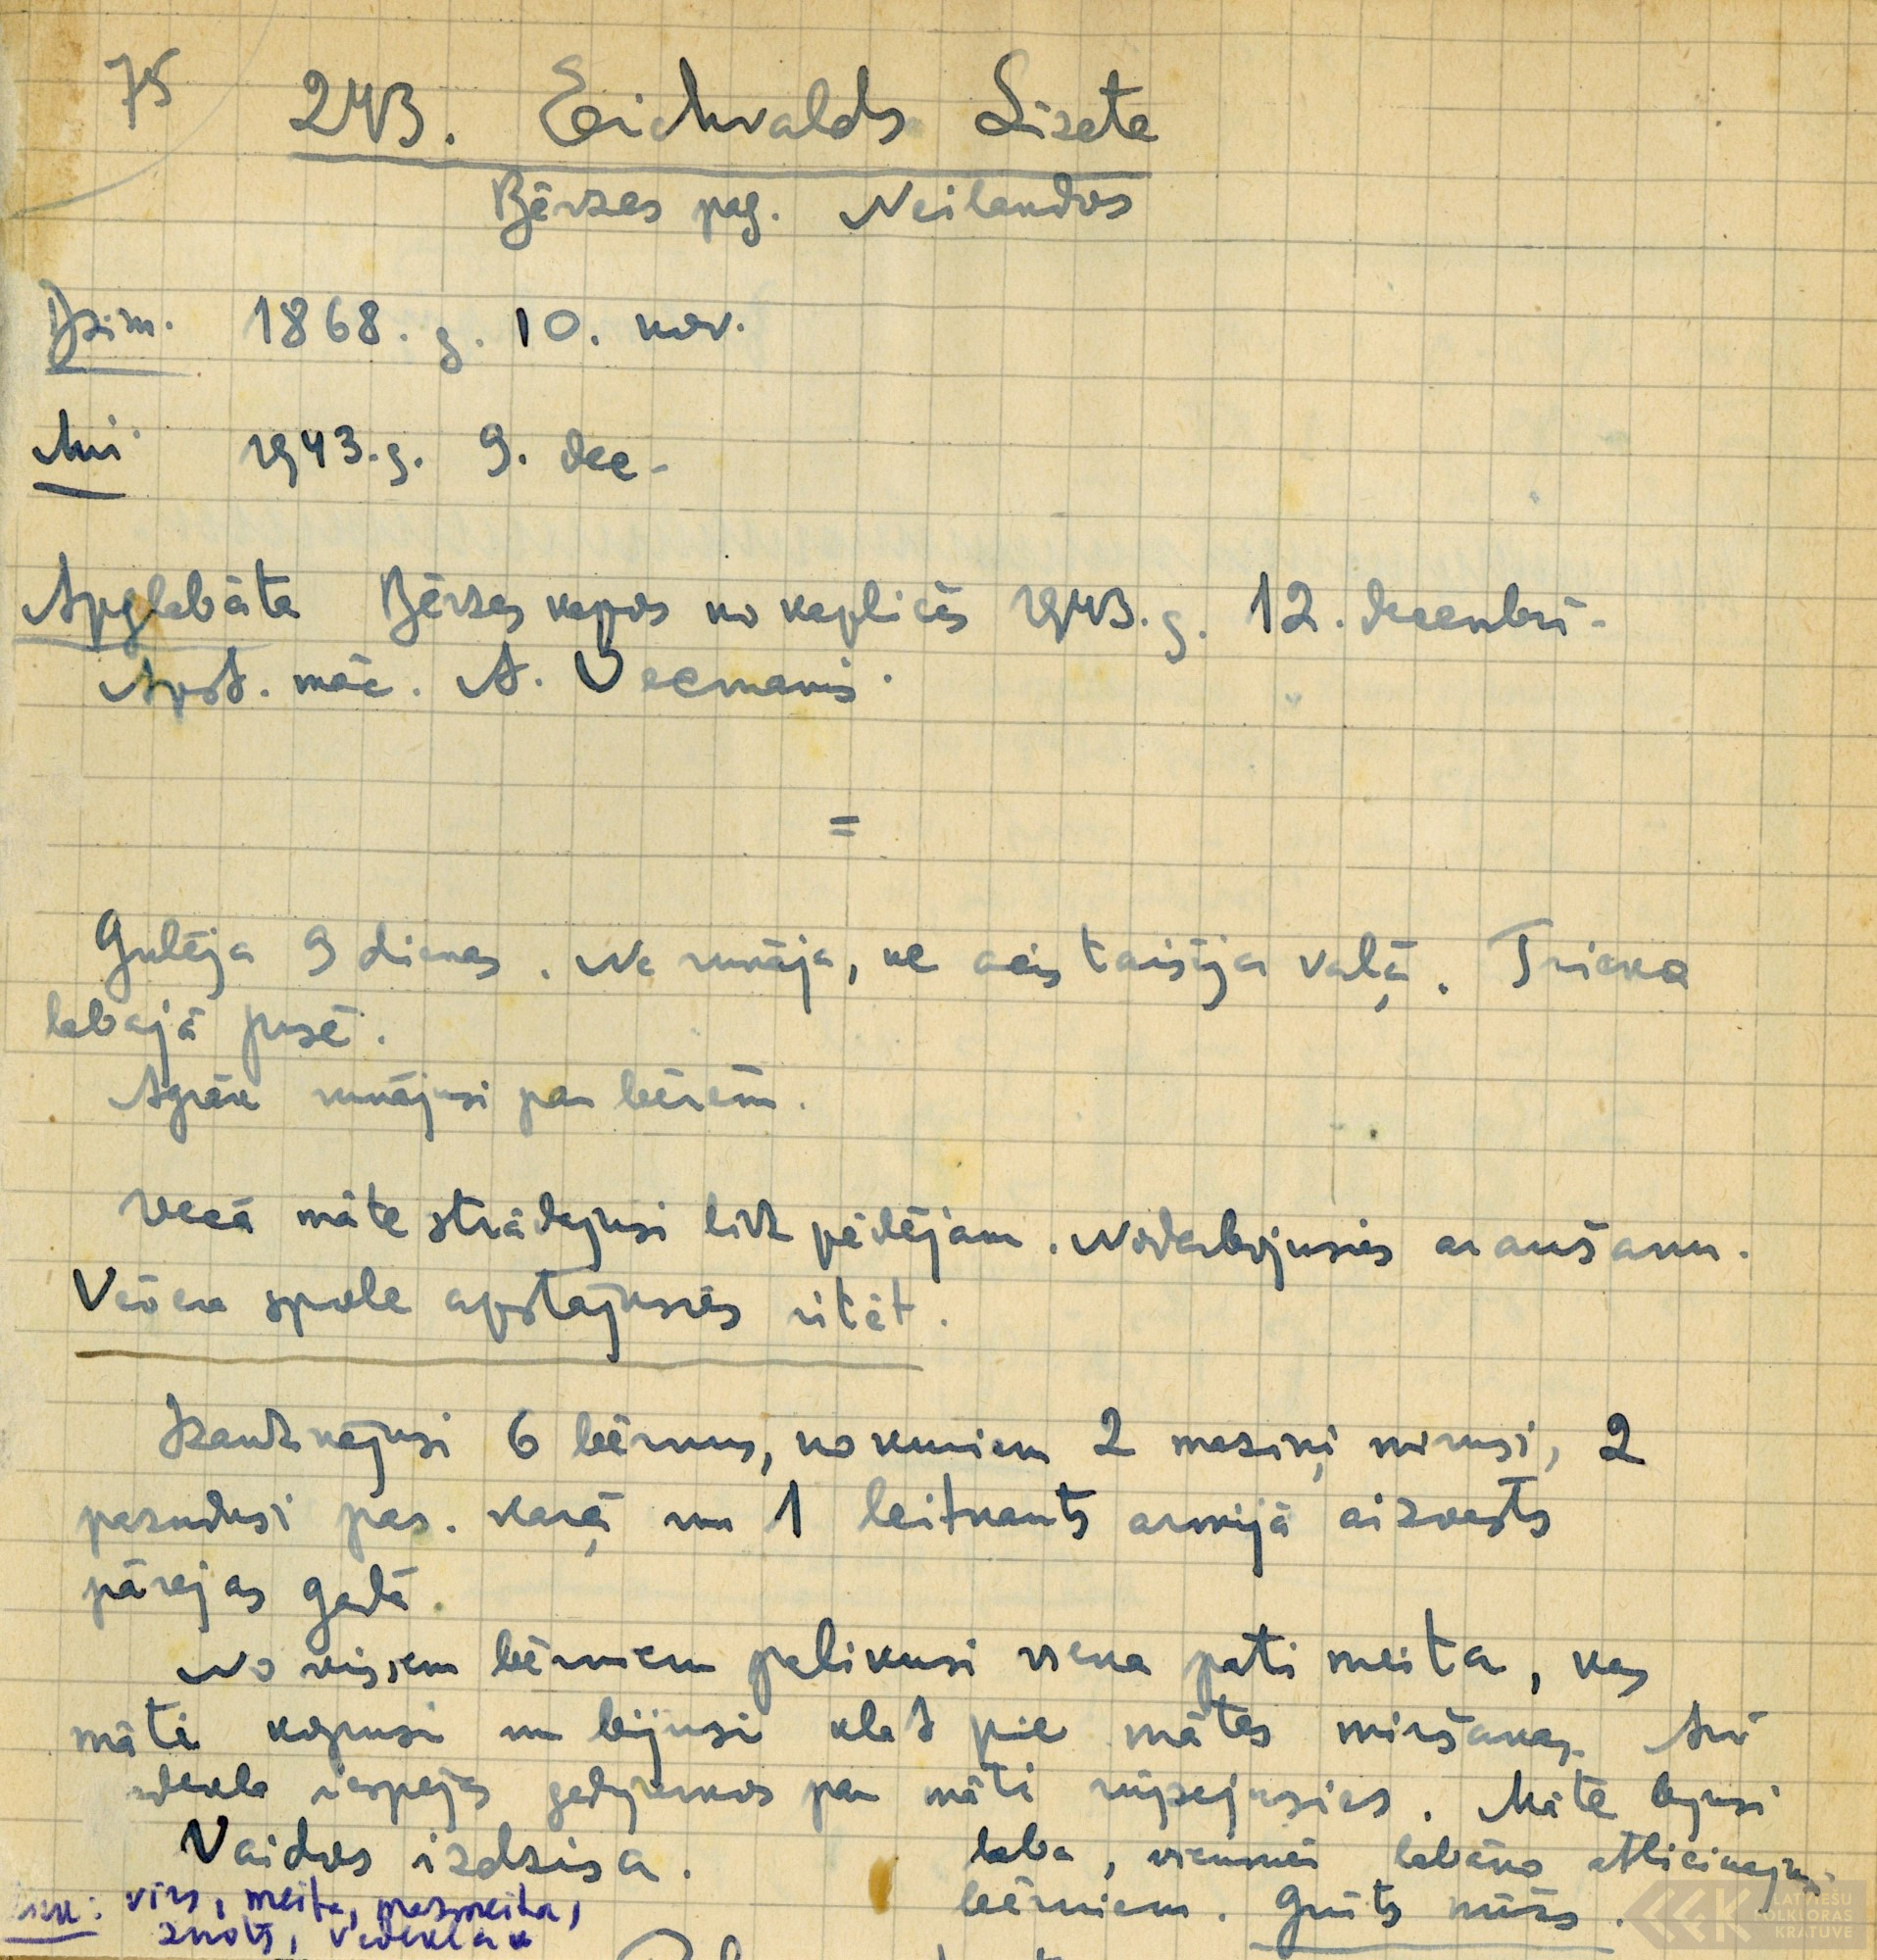 75 243. Eichvalds Lizete
Bērzes pag. Neilandos
Dzim. 1868. g. 10. nov.
Mir. 1943. g. 9. dec.
Apglabāta Bērzes kapos no kaplicēs 1943. g. 12. decembrī.
Apst. māc. A. Vecmanis.
=
Gulēja 9 dienas. Ne runāja, ne acis taisīja vaļā. Trieka
labajā pusē.
Agrāk runājusi par bērēm.
Vecā māte strādājusi līdz pēdējam. Nodarbojusies ar aušanu.
Vēven spole apstājusies ritēt.
Izaudzinājusi 6 bērnus, no kuriem 2 maziņi miruši, 2
pazuduši pas. karā un 1 leitnants armijā aizvests
pārejas gadā.
No visiem bērniem palikusi viena pati meita, kas
māti kopusi un bijusi klāt pie mātes miršanas. Arī
vedekla iespējas gadījumos par māti rūpējusies. Māte bijusi
laba, vienmēr labāko atlicinājusi
bērniem. Grūts mūžs.
Vaidos izdzisa.
vīrs, meita, mazmeita,
znots, vedeklas
LATVIEŠU
FOLKLORAS
KRĀTUVE